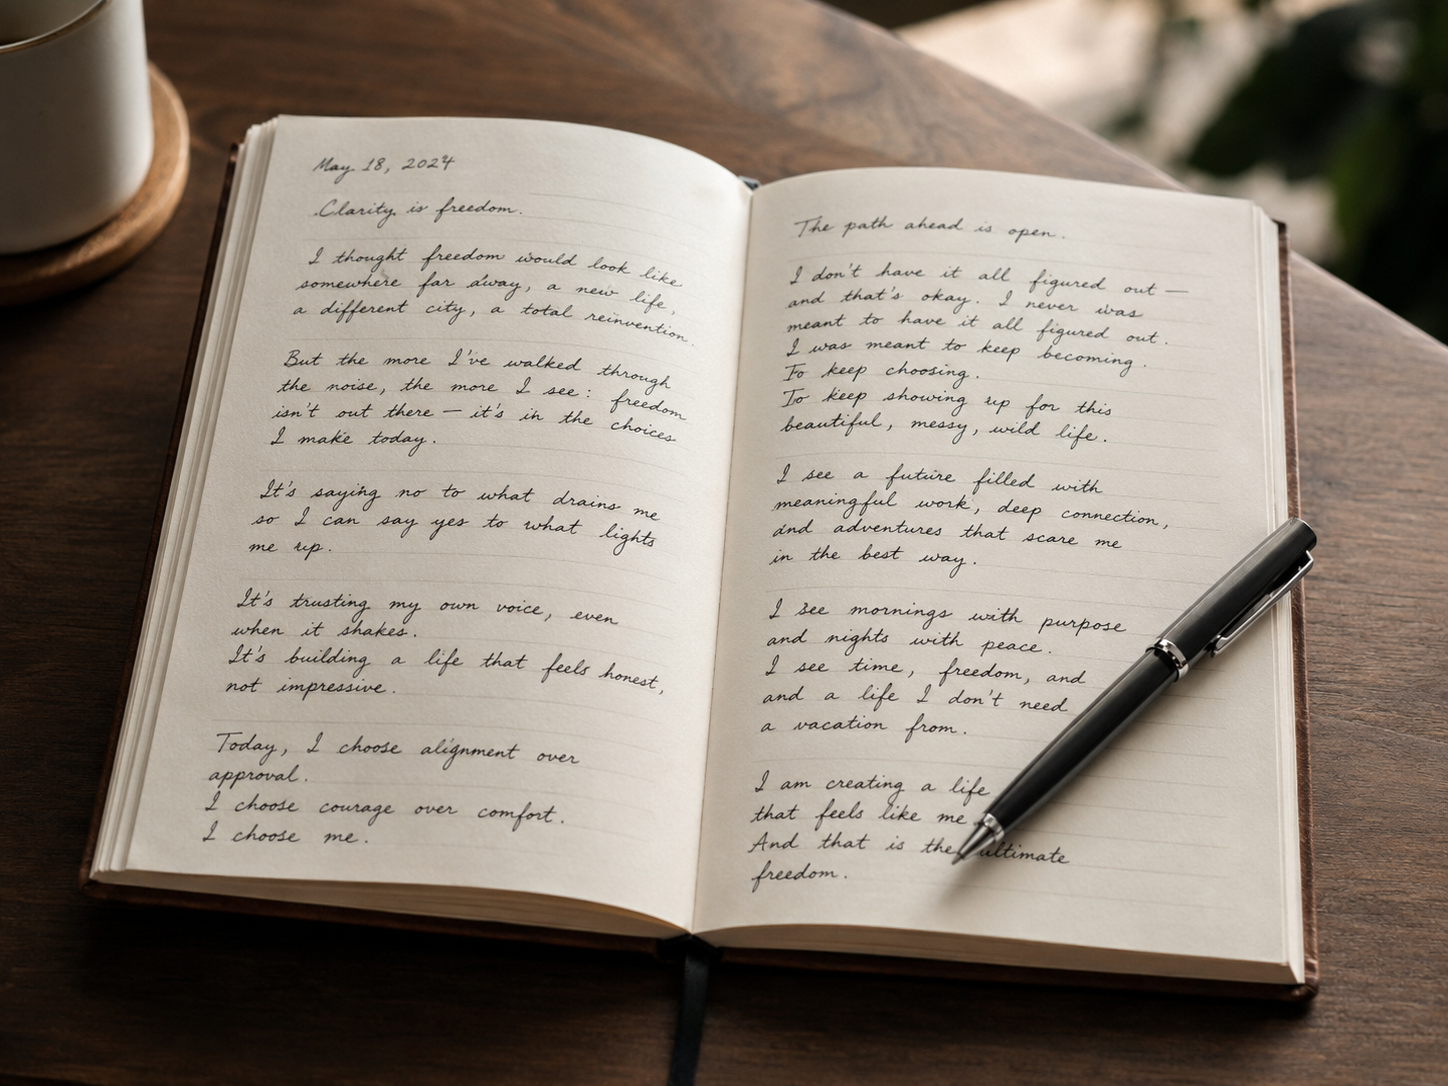 May 18, 2024
Clarity is freedom.
I thought freedom would look like
somewhere far away, a new life,
a different city, a total reinvention.
But the more I've walked through
the noise, the more I see: freedom
isn't out there — it's in the choices
I make today.
It's saying no to what drains me
so I can say yes to what lights
me up.
It's trusting my own voice, even
when it shakes.
It's building a life that feels honest,
not impressive.
Today, I choose alignment over
approval.
I choose courage over comfort.
I choose me.
The path ahead is open.
I don't have it all figured out —
and that's okay. I never was
meant to have it all figured out.
I was meant to keep becoming.
To keep choosing.
To keep showing up for this
beautiful, messy, wild life.
I see a future filled with
meaningful work, deep connection,
and adventures that scare me
in the best way.
I see mornings with purpose
and nights with peace.
I see time, freedom, and
and a life I don't need
a vacation from.
I am creating a life
that feels like me
And that is the ultimate
freedom.